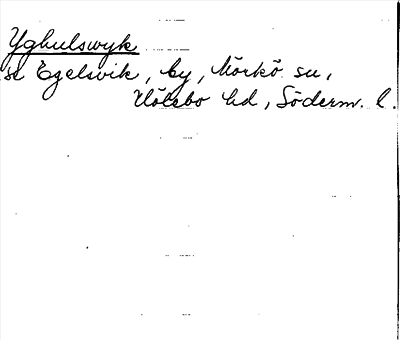 Yghulswyk
se Egelsvik, by, Mörkö sn,
Hölebo hd, Söderm. l.